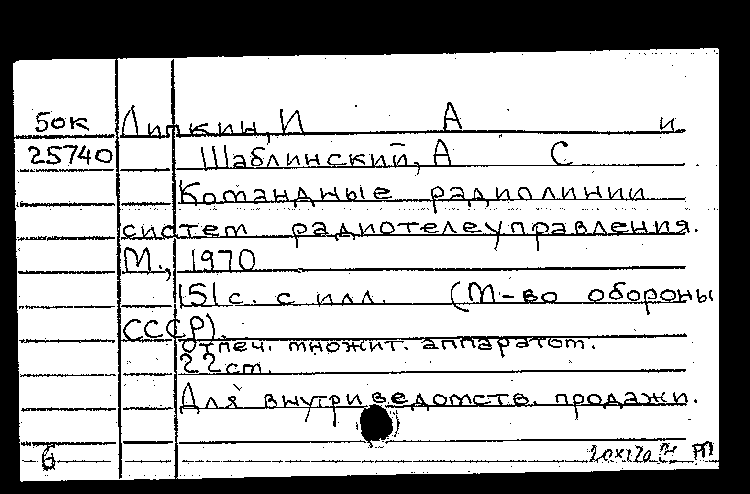 50к Липкин, И А и
25740 Шаблинский, А С
Командные радиолинии
систем радиотелеуправления.
М., 1970
151 с. с илл. (М-во обороны
СССР).
Отпеч. множит. аппаратом.
22 см.
Для внутриведомств. продажи.
6